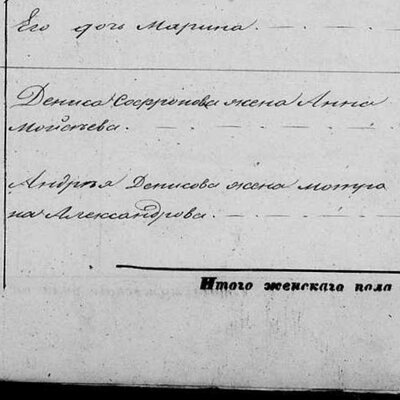 Его дочь Марина.
Дениса Софронова жена Анна
Мойсеева.
Андрея Денисова жена Матро
на Александрова.
Итого женскаго пола